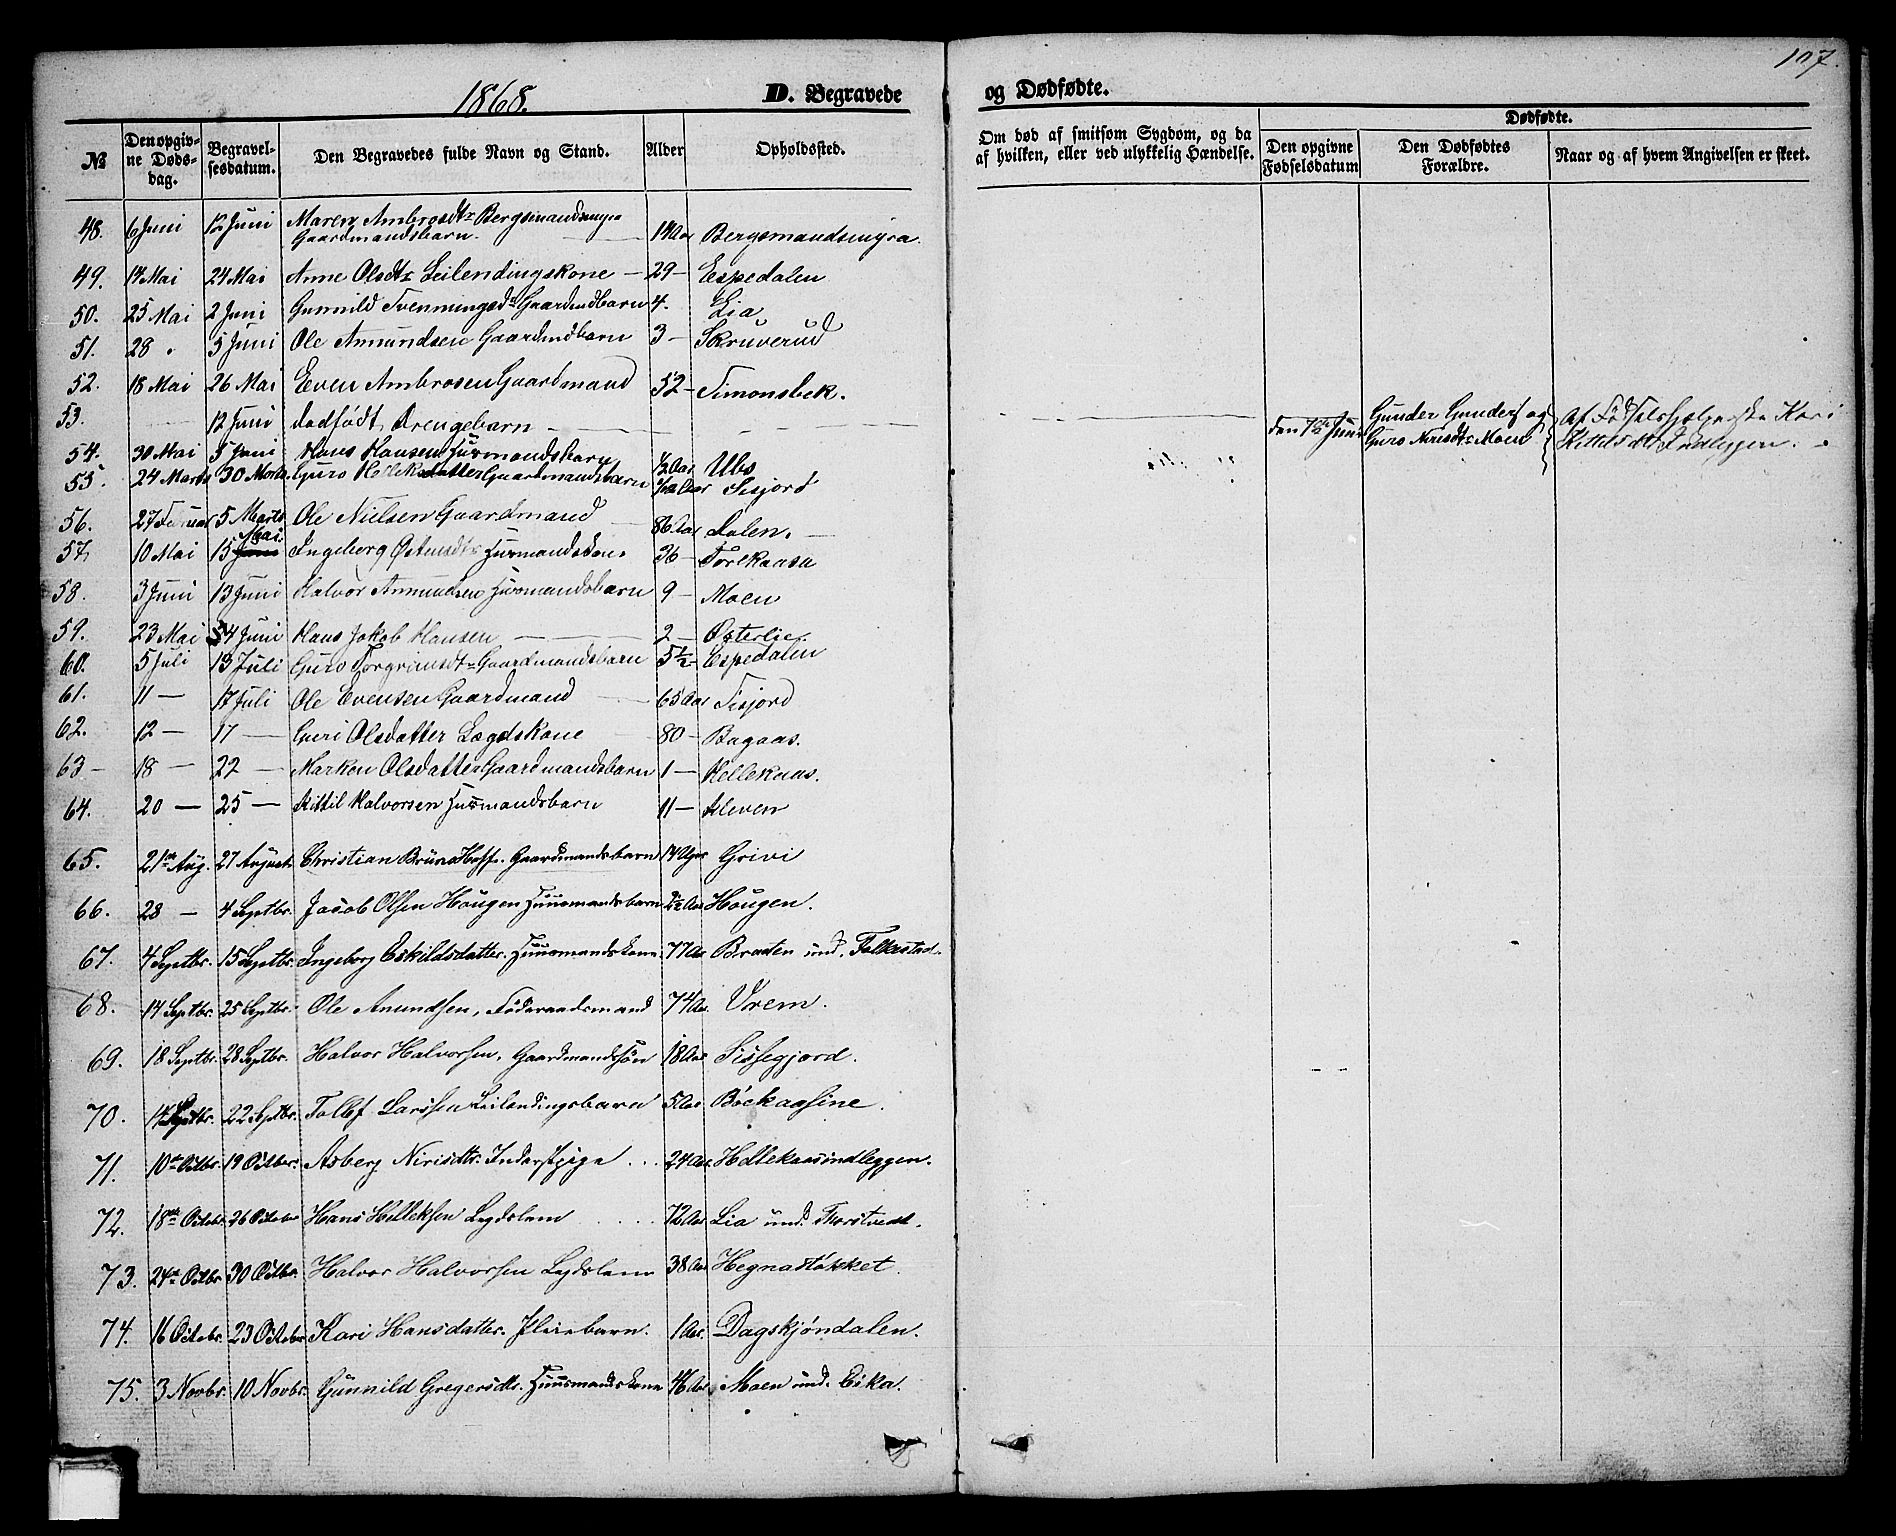 107.
1868.
D. Begravede
og Dødfødte.
№
Den opgivne Dødsdag.
Begravelsesdatum.
Den Begravedes fulde Navn og Stand.
Alder
Opholdssted.
Om død af smitsom Sygdom, og da af hvilken, eller ved ulykkelig Hændelse.
Dødfødte.
Den opgivne Fødselsdatum
Den Dødfødtes Forældre.
Naar og af hvem Angivelsen er skeet.
48. 6 Juni 12 Juni Maren Ambrosdtr Bergsmandsmyra Gaardmandsbarn. 14 Aar Bergsmandsmyra.
49. 14 Mai 24 Mai Anne Olsdtr Leilendingskone — 29 — Espedalen
50. 25 Mai 2 Juni Gunnild Svenningsdr Gaardmdbarn 4. Lia
51. 28 " 5 Juni Ole Amundsen Gaardmdbarn 3 — Skruverud
52. 18 Mai 26 Mai Even Ambrosen Gaardmand 52 — Simonsbek.
53. 12 Juni dødfødt Drengebarn — — — den 7de Juni Gunder Gunders og Guro Nirisdtr Moen Af Fødselshjelperske Kari Kittelsdtr Indlegjen.
54. 30 Mai 5 Juni Hans Hansen Husmandsbarn ½ Aar Ubs
55. 24 Marts 30 Marts Guro Helleksdatter Gaardmandsbarn Aar Sisjord
56. 27 Februar 5 Marts Ole Nielsen Gaardmand 86 Aar Dalen. —
57. 10 Mai 15 Mai Ingeborg Østensdtr Husmandskone 36 — Torekaasa
58. 3 Juni 13 Juni Halvor Amundsen Husmandsbarn 9 — Moen
59. 23 Mai 4 Juni Hans Jakob Hansen — — 2 — Østerlie.
60. 5 Juli 13 Juli Guro Torgrimsdtr Gaardmandsbarn 5½ — Espedalen
61. 11 — 17 Juli Ole Evensen Gaardmand — 65 Aar Sisjord
62. 12 — 17 — Guri Olsdatter Lægdskone 80 — Bagaas.
63 — 18 — 22 — Marken Olsdatter Gaardmandsbarn 1 — Hellekaas.
64. 20 — 25 — Kittil Halvorsen Husmandsbarn 11 — Kleven
65. 21de Aug. 27 August Christian Bruno Hoff. Gaardmandsbarn 14 Uger Grivi
66. 28 — 4 Septbr. Jacob Olsen Hougen Huusmandsbarn 2½ Aar Hougen.
67. 4 Septbr. 15 Septbr. Ingeborg Eskildsdatter. Huusmandskone 77 Aar Braaten und. Folkestad.
68. 14 Septbr. 25 Septbr. Ole Amundsen, Føderaadsmand 74 Aar. Vrem.
69. 18 Septbr. 28 Septbr. Halvor Halvorsen, Gaardmandssøn 18 Aar Sissegjord.
70. 14 Septbr. 22 Septbr. Tollef Larssen Leilendingsbarn 5 Aar Bøckaasine.
71. 10de Octbr. 19 Octbr. Asberg Nirisdtr. Inderstpige ... 24 Aar. Hellekaasindleggen.
72. 18de Octobr 26 Octobr Hans Helleksen Legdslem ... 72 Aar Lia und. Thorstvedt.
73. 24de Octbr 30 Octbr. Halvor Halvorsen Legdslem 38 Aar Hegnastøkket.
74. 16 Octobr. 23 Octobr Kari Hansdatter. Pleiebarn. 1 Aar. Dagskjøndalen.
75. 3 Novbr. 10 Novbr. Gunnild Gregersdtr. Huusmandskone 46 Aar. Moen und. Eika.